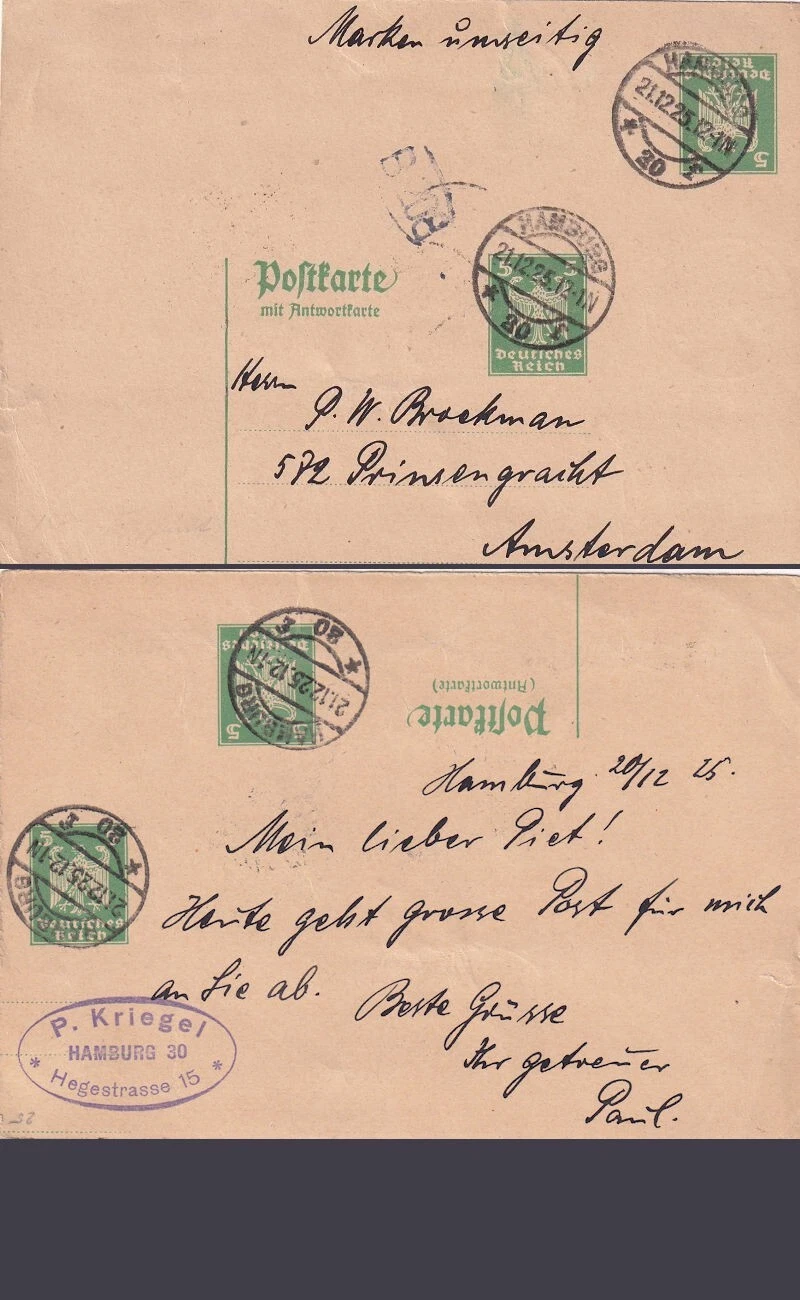 Marken umseitig
Deutsches
Reich
5
HAMBURG
21.12.25.12-1N
* 20
BZ
HAMBURG
21.12.25.12-1N
* 20 f
5 5
Deutsches
Reich
Postkarte
mit Antwortkarte
Herrn
P. W. Brockman
572 Prinsengracht
Amsterdam
Deutsches
5 5
HAMBURG
21.12.25.12-1N
* 20 f
Postkarte
(Antwortkarte)
Hamburg 20/12 25.
Mein lieber Piet!
5
Deutsches
Reich
21.12.25.12-1N
* 20 f
Heute geht grosse Post für mich
an Sie ab.
Beste Grüsse
Ihr getreuer
Paul.
P. Kriegel
HAMBURG 30
* Hegestrasse 15 *